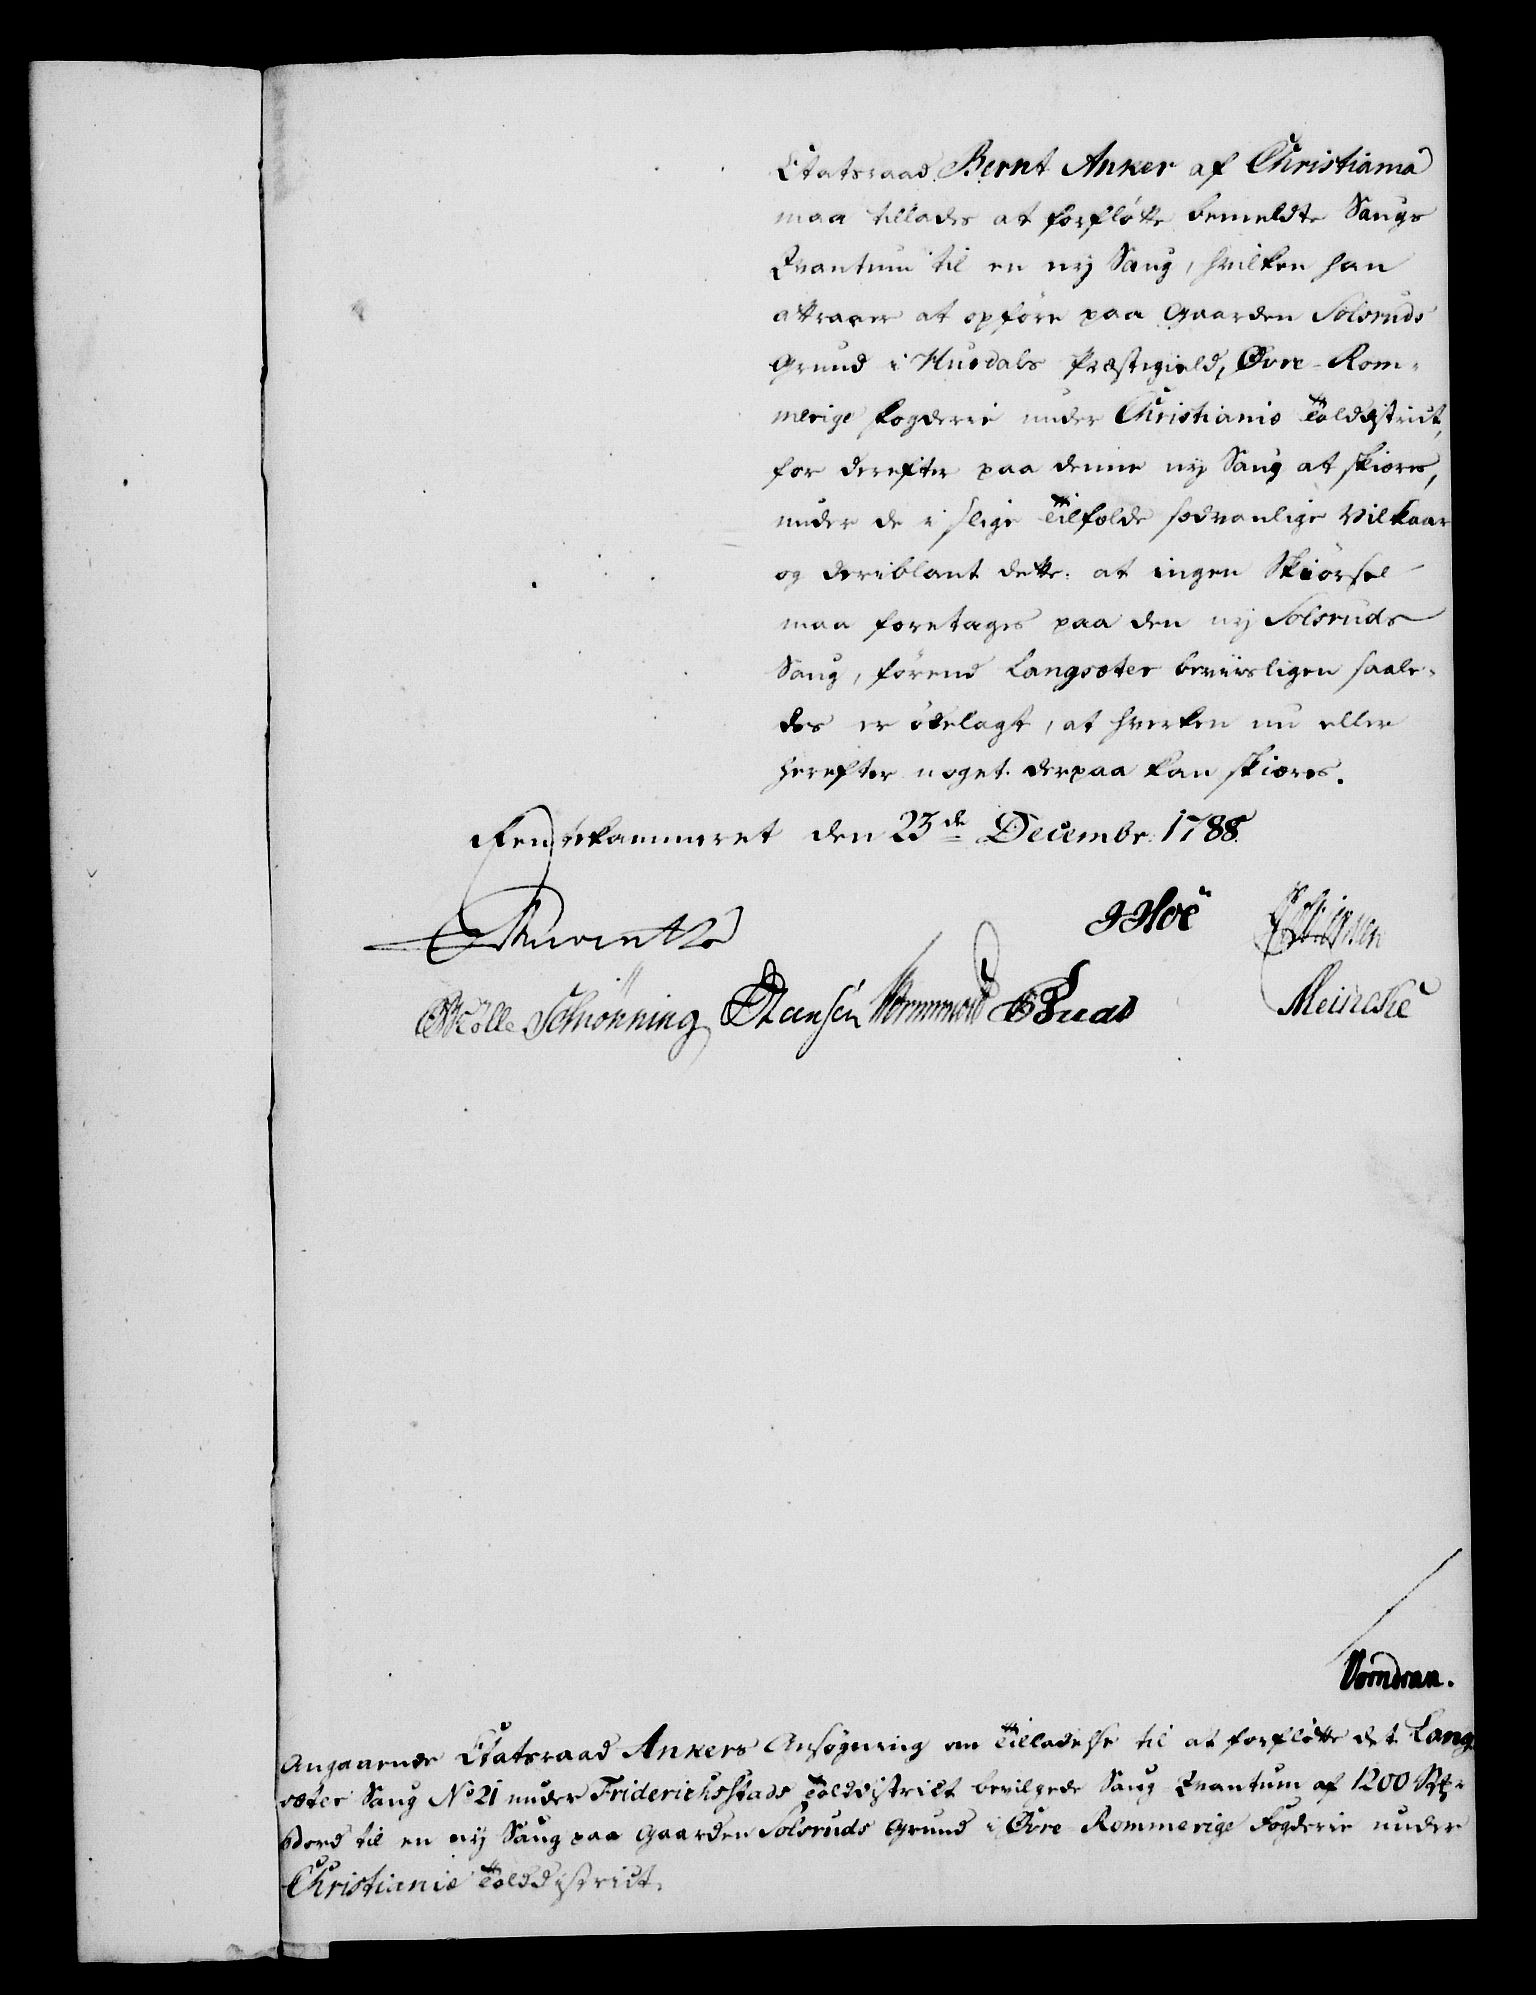 Etatsraad Bernt Anker af Christiania
maa tillades at forfløtte bemeldte Saugs
Qvantum til en nÿ Saug, hvilken han
attraaer at opføre paa Gaarden Solsruds
Grund i Hurdals Præstegield, Øvre-Rom-
merige Fogderie under Christianiæ Tolddistrict,
for derefter paa denne nÿ Saug at skiæres,
under de i slige Tilfælde sædvanlige Vilkaar
og deriblant dette: at ingen Skiørsel
maa foretages paa den nÿ Solsruds
Saug, førend Langsæter beviisligen saale-
des er ødelagt, at hverken nu eller
herefter noget derpaa kan skiæres.
Rentekammeret den 23de Decembr. 1788.
JHoë
Mølle Schiønning Hansen Wormwold Meincke
Vorndran.
Angaaende Etatsraad Ankers Ansøgning om Tilladelse til at forfløtte det Lang-
sæter Saug No 21 under Friderichsstads Tolddistrict bevilgede Saug Qvantum af 1200 Stk:
Bord til en nÿ Saug paa Gaarden Solsruds Grund i Øvre-Rommerige Fogderie under
Christianiæ Tolddistrict.